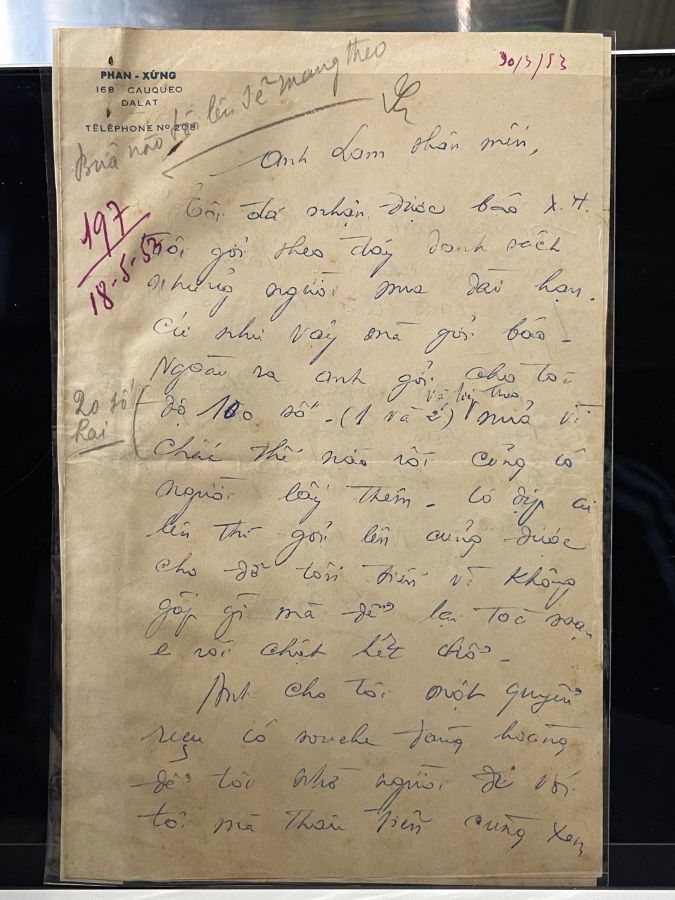 PHAN - XỨNG
168 CAUQUEO
DALAT
TÉLÉPHONE Nº 208
30/3/53
Buổi nào lên sẽ mang theo
197
18-5-53
Anh Lam thân mến,
Tôi đã nhận được báo X.H.
Tôi gởi theo đây danh sách
những người mua dài hạn.
Cứ như vậy mà gởi báo.
Ngoài ra anh gởi cho tôi
và tiếp theo
độ 100 số - (1 và 2) nữa vì
20 số
hai
chắc thế nào rồi cũng có
người lấy thêm. Có dịp ai
lên thì gởi lên cũng được
cho đỡ tốn tiền vì không
gấp gì mà để lại toà soạn
e rồi chật hết chỗ.
Anh cho tôi một quyển
reçu có souche đàng hoàng
để tôi nhờ người đi với
tôi mà thâu tiền cũng xem